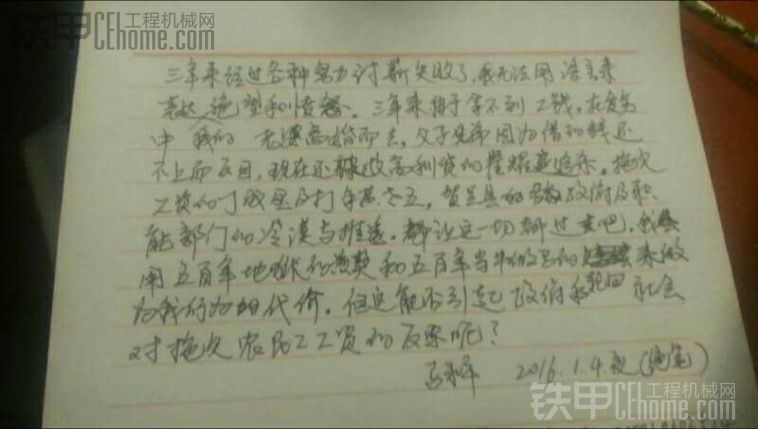 铁甲 工程机械网
CEhome.com
三年来经过各种努力讨薪失败了,我无法用语言来
表达绝望和愤怒。三年来由于拿不到工钱,在贫穷
中 我的 无谋离婚而去,父子兄弟因为借的钱还
不上而反目,现在还被放高利贷的 追杀。拖欠
工资的丁成 及打手 ,贺兰县的 政府及职
能部门的冷漠与推诿。都让这一切都过去吧,我
用五百年地狱的 和五百年当牛做马的 来做
为我行为的代价。但这能否引起政府和 社会
对拖欠农民工工资的反思呢?
马永平 2016.1.4.夜(绝笔)
铁甲 工程机械网
CEhome.com